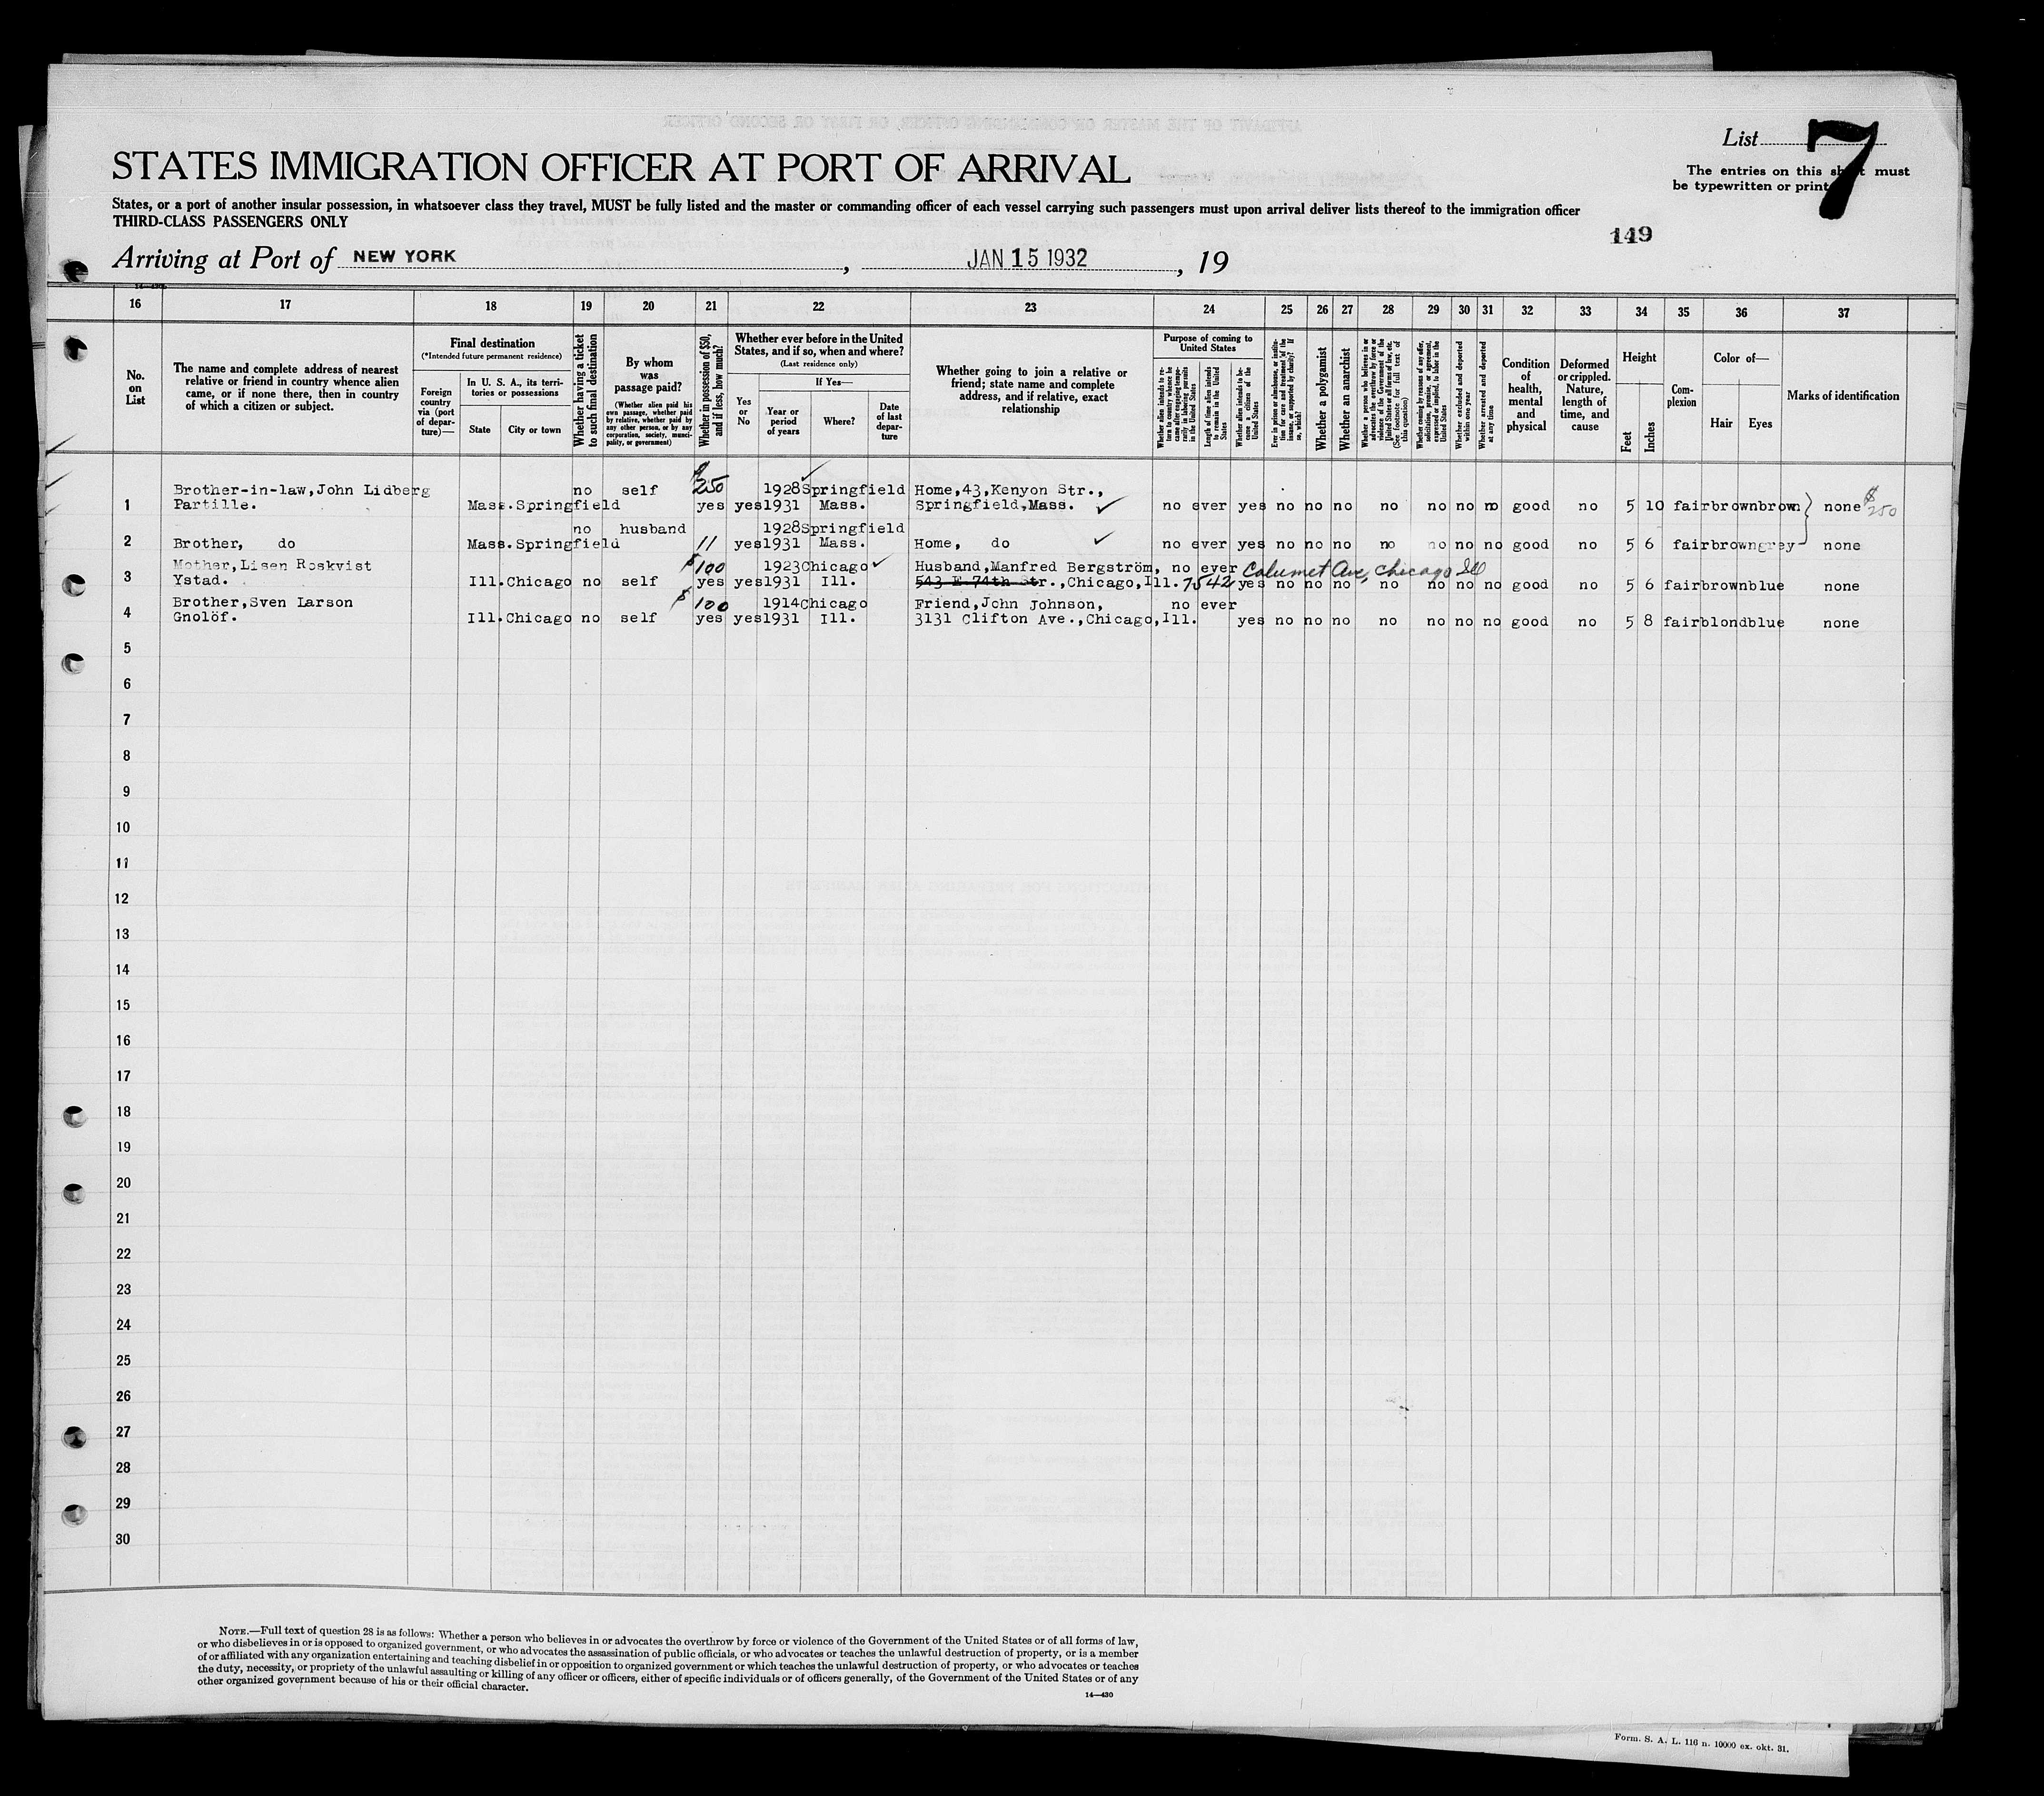 List 7
STATES IMMIGRATION OFFICER AT PORT OF ARRIVAL
The entries on this sheet must
be typewritten or printed
States, or a port of another insular possession, in whatsoever class they travel, MUST be fully listed and the master or commanding officer of each vessel carrying such passengers must upon arrival deliver lists thereof to the immigration officer
THIRD-CLASS PASSENGERS ONLY
149
Arriving at Port of NEW YORK, JAN 15 1932, 19
16 17 18 19 20 21 22 23 24 25 26 27 28 29 30 31 32 33 34 35 36 37
No. on List
The name and complete address of nearest
relative or friend in country whence alien
came, or if none there, then in country
of which a citizen or subject.
Final destination
(*Intended future permanent residence)
Foreign country via (port of departure)—
In U. S. A., its territories or possessions
State City or town
Whether having a ticket to such final destination
By whom was passage paid?
(Whether alien paid his own passage, whether paid by relative, whether paid by any other person, or by any corporation, society, municipality, or government)
Whether in possession of $50, and if less, how much?
Whether ever before in the United States, and if so, when and where?
(Last residence only)
Yes or No
If Yes—
Year or period of years
Where?
Date of last departure
Whether going to join a relative or
friend; state name and complete
address, and if relative, exact
relationship
Purpose of coming to United States
Whether alien intends to return to country whence he came after engaging temporarily in laboring pursuits in the United States
Length of time alien intends to remain in the United States
Whether alien intends to become a citizen of the United States
Ever in prison or almshouse, or institution for care and treatment of the insane, or supported by charity? If so, which?
Whether a polygamist
Whether an anarchist
Whether a person who believes in or advocates the overthrow by force or violence of the Government of the United States or all forms of law, etc. (See footnote for full text of this question)
Whether coming by reasons of any offer, solicitation, promise, or agreement, expressed or implied, to labor in the United States
Whether excluded and deported within one year
Whether arrested and deported at any time
Condition of health, mental and physical
Deformed or crippled. Nature, length of time, and cause
Height
Feet Inches
Complexion
Color of—
Hair Eyes
Marks of identification
Brother-in-law, John Lidberg no self $250 1928 Springfield Home,43,Kenyon Str.,
1 Partille. Mass. Springfield yes yes 1931 Mass. Springfield,Mass. no ever yes no no no no no no no good no 5 10 fair brown brown none $250
no husband 1928 Springfield
2 Brother, do Mass. Springfield 11 yes 1931 Mass. Home, do no ever yes no no no no no no no good no 5 6 fair brown grey none
Mother, Lisen Roskvist $100 1923 Chicago Husband,Manfred Bergström, no ever Calumet Ave, Chicago Ill
3 Ystad. Ill. Chicago no self yes yes 1931 Ill. 543 E 74th Str.,Chicago,Ill. 7542 yes no no no no no no no good no 5 6 fair brown blue none
Brother, Sven Larson $100 1914 Chicago Friend,John Johnson, no ever
4 Gnolöf. Ill. Chicago no self yes yes 1931 Ill. 3131 Clifton Ave.,Chicago,Ill. yes no no no no no no no good no 5 8 fair blond blue none
5
6
7
8
9
10
11
12
13
14
15
16
17
18
19
20
21
22
23
24
25
26
27
28
29
30
NOTE.—Full text of question 28 is as follows: Whether a person who believes in or advocates the overthrow by force or violence of the Government of the United States or of all forms of law,
or who disbelieves in or is opposed to organized government, or who advocates the assassination of public officials, or who advocates or teaches the unlawful destruction of property, or is a member
of or affiliated with any organization entertaining and teaching disbelief in or opposition to organized government or which teaches the unlawful destruction of property, or who advocates or teaches
the duty, necessity, or propriety of the unlawful assaulting or killing of any officer or officers, either of specific individuals or of officers generally, of the Government of the United States or of any
other organized government because of his or their official character.
14—430
Form. S. A. L. 116 n. 10000 ex. okt. 31.